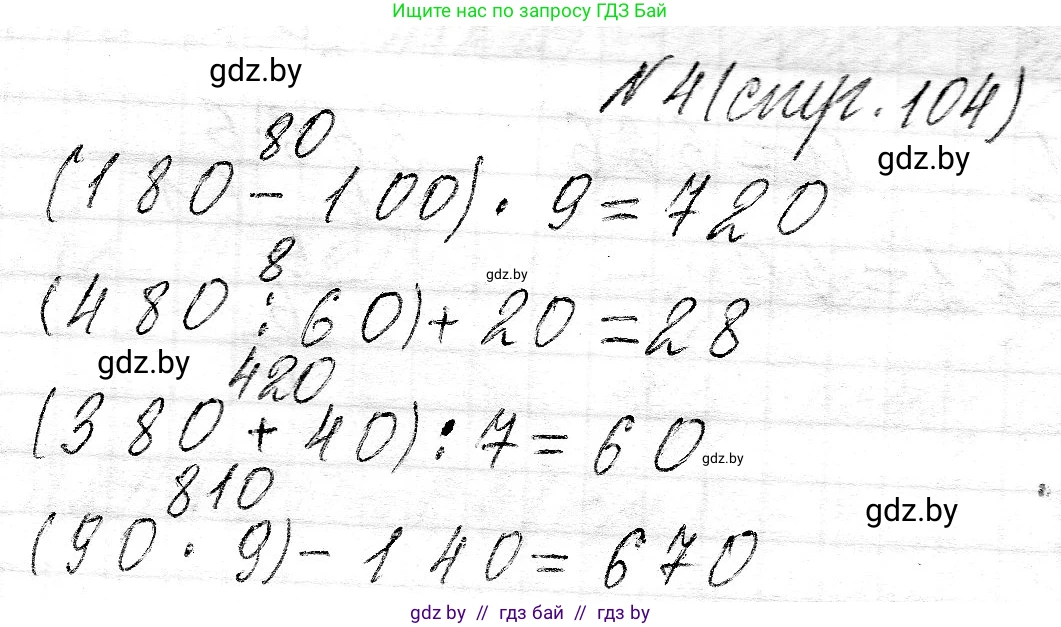 Ищите нас по запросу ГДЗ Бай
gdz.by
N 4 (стр. 104)
gdz.by
80
(180 - 100) · 9 = 720
8
gdz.by
(480 : 60) + 20 = 28
gdz.by
420
(380 + 40) : 7 = 60
gdz.by
810
gdz.by
(90 · 9) - 140 = 670
gdz by // гдз бай // gdz by